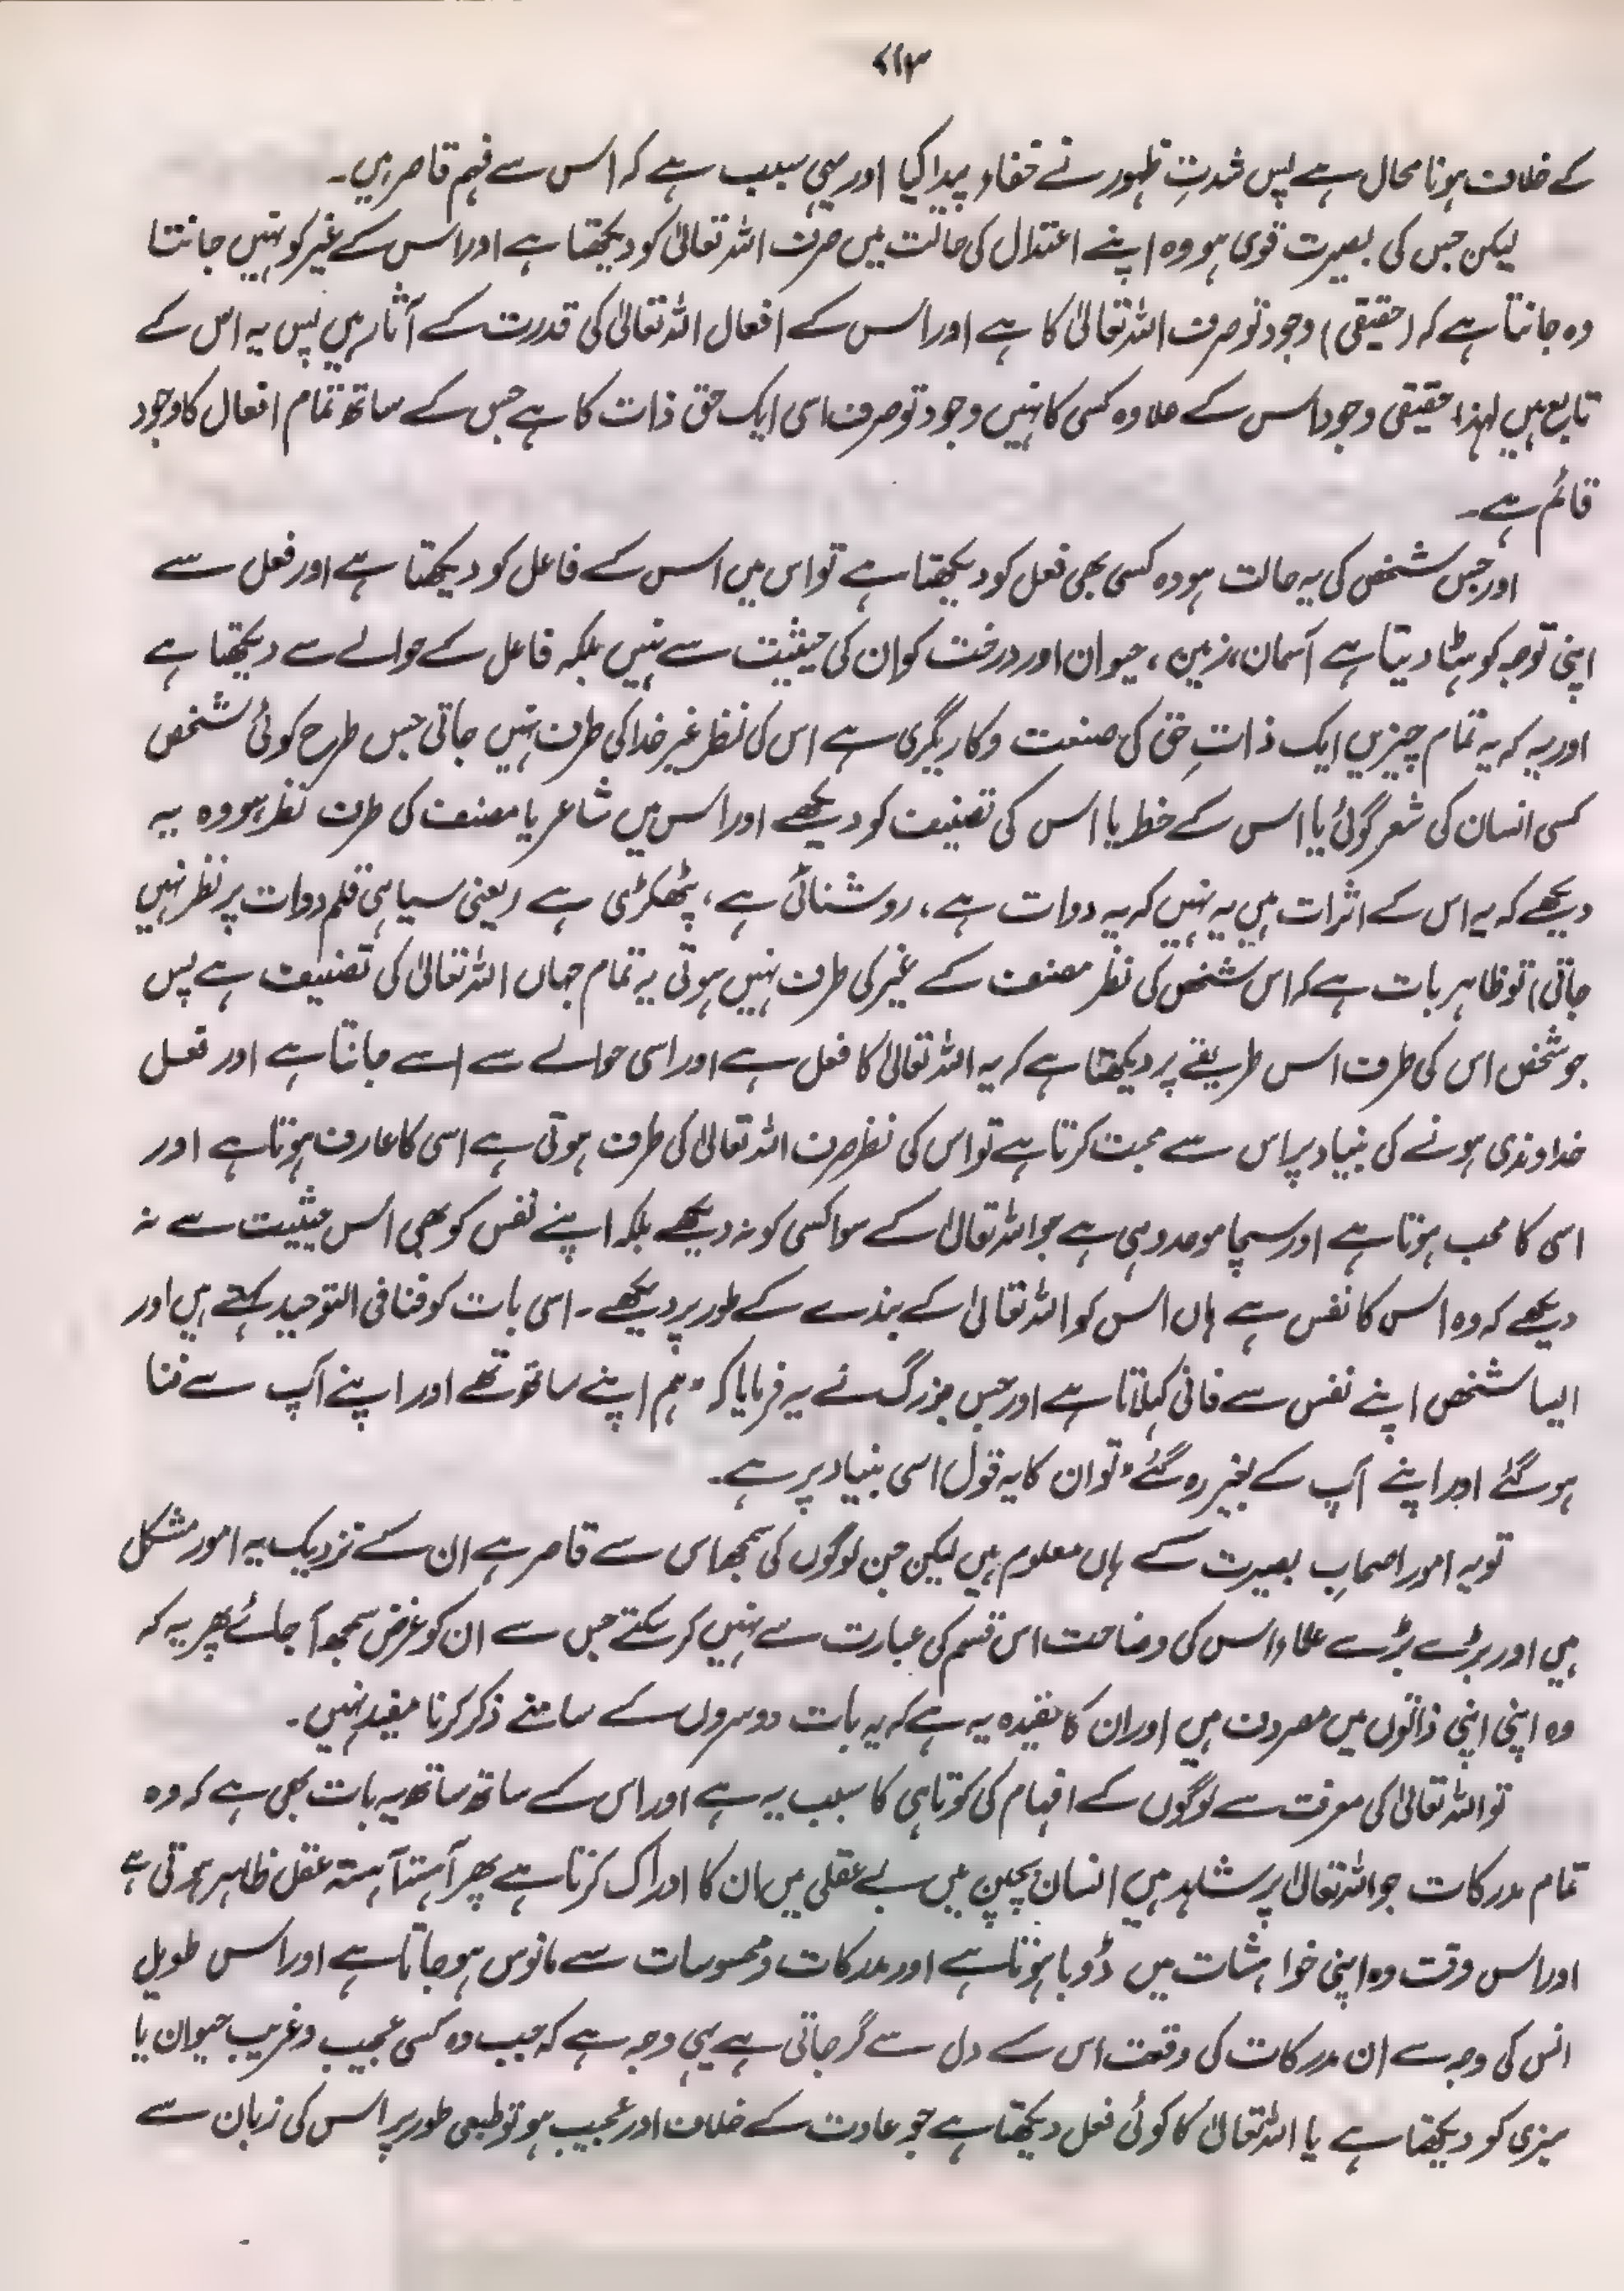 ۷۱۳
کے خلاف ہونا محال ہے پس شدتِ ظہور نے خفاء پیدا کیا اور یہی سبب ہے کہ اس سے فہم قاصر ہیں۔
لیکن جس کی بصیرت قوی ہو وہ اپنے اعتدال کی حالت میں صرف اللہ تعالیٰ کو دیکھتا ہے اور اس کے غیر کو نہیں جانتا
وہ جانتا ہے کہ (حقیقی) وجود تو صرف اللہ تعالیٰ کا ہے اور اس کے افعال اللہ تعالیٰ کی قدرت کے آثار ہیں پس یہ اس کے
تابع ہیں لہذا حقیقی وجود اس کے علاوہ کسی کا نہیں وجود تو صرف اسی ایک حق ذات کا ہے جس کے ساتھ تمام افعال کا وجود
قائم ہے۔
اور جس شخص کی یہ حالت ہو وہ کسی بھی فعل کو دیکھتا ہے تو اس میں اس کے فاعل کو دیکھتا ہے اور فعل سے
اپنی توجہ کو ہٹا دیتا ہے آسمان، زمین، حیوان اور درخت کو ان کی حیثیت سے نہیں بلکہ فاعل کے حوالے سے دیکھتا ہے
اور یہ کہ یہ تمام چیزیں ایک ذاتِ حق کی صنعت و کاریگری ہے اس کی نظر غیر خدا کی طرف نہیں جاتی جس طرح کوئی شخص
کسی انسان کی شعر گوئی یا اس کے خط یا اس کی تصنیف کو دیکھے اور اس میں شاعر یا مصنف کی طرف نظر ہو وہ یہ
دیکھے کہ یہ اس کے اثرات ہیں یہ نہیں کہ یہ دوات ہے، روشنائی ہے، پھٹکڑی ہے (یعنی سیاہی قلم دوات پر نظر نہیں
جاتی) تو ظاہر بات ہے کہ اس شخص کی نظر مصنف کے غیر کی طرف نہیں ہوتی یہ تمام جہاں اللہ تعالیٰ کی تصنیف ہے پس
جو شخص اس کی طرف اس طریقے پر دیکھتا ہے کہ یہ اللہ تعالیٰ کا فعل ہے اور اسی حوالے سے اسے جانتا ہے اور فعل
خداوندی ہونے کی بنیاد پر اس سے محبت کرتا ہے تو اس کی نظر صرف اللہ تعالیٰ کی طرف ہوتی ہے اسی کا عارف ہوتا ہے اور
اسی کا محب ہوتا ہے اور سچا موحد وہی ہے جو اللہ تعالیٰ کے سوا کسی کو نہ دیکھے بلکہ اپنے نفس کو بھی اس حیثیت سے نہ
دیکھے کہ وہ اس کا نفس ہے ہاں اس کو اللہ تعالیٰ کے بندے کے طور پر دیکھے۔ اسی بات کو فنا فی التوحید کہتے ہیں اور
ایسا شخص اپنے نفس سے فانی کہلاتا ہے اور جس بزرگ نے یہ فرمایا کہ "ہم اپنے ساتھ تھے اور اپنے آپ سے فنا
ہو گئے اور اپنے آپ کے بغیر رہ گئے" تو ان کا یہ قول اسی بنیاد پر ہے۔
تو یہ امور اصحابِ بصیرت کے ہاں معلوم ہیں لیکن جن لوگوں کی سمجھ اس سے قاصر ہے ان کے نزدیک یہ امور مشکل
ہیں اور بڑے بڑے علماء اس کی وضاحت اس قسم کی عبارت سے نہیں کر سکتے جس سے ان کو غرض سمجھ آ جائے پھر یہ کہ
وہ اپنی اپنی ذاتوں میں مصروف ہیں اور ان کا عقیدہ یہ ہے کہ یہ بات دوسروں کے سامنے ذکر کرنا مفید نہیں۔
تو اللہ تعالیٰ کی معرفت سے لوگوں کے افہام کی کوتاہی کا سبب یہ ہے اور اس کے ساتھ ساتھ یہ بات بھی ہے کہ وہ
تمام مدرکات جو اللہ تعالیٰ پر شاہد ہیں انسان بچپن میں بے عقلی میں ان کا ادراک کرتا ہے پھر آہستہ آہستہ عقل ظاہر ہوتی ہے
اور اس وقت وہ اپنی خواہشات میں ڈوبا ہوتا ہے اور مدرکات و محسوسات سے مانوس ہو جاتا ہے اور اس طویل
انس کی وجہ سے ان مدرکات کی وقعت اس کے دل سے گر جاتی ہے یہی وجہ ہے کہ جب وہ کسی عجیب و غریب حیوان یا
سبزی کو دیکھتا ہے یا اللہ تعالیٰ کا کوئی فعل دیکھتا ہے جو عادت کے خلاف اور عجیب ہو تو طبعی طور پر اس کی زبان سے